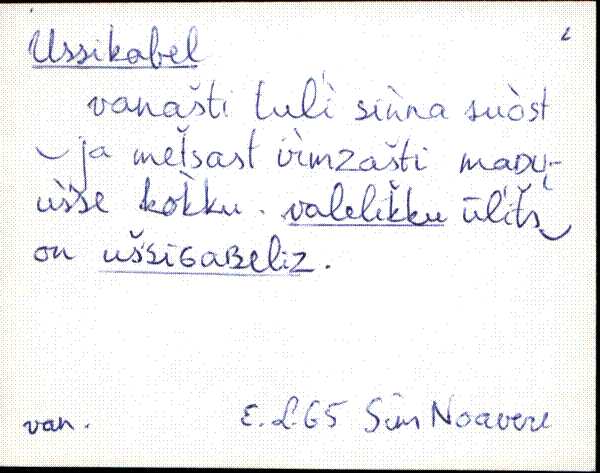 Ussikabel
vanašti tuli sinna suòst
ja metsast irmzašti maDU-
usse kokku. valelikku ülits
on uššiGaBeliz.
van. E. L. 65 Sim Noavere